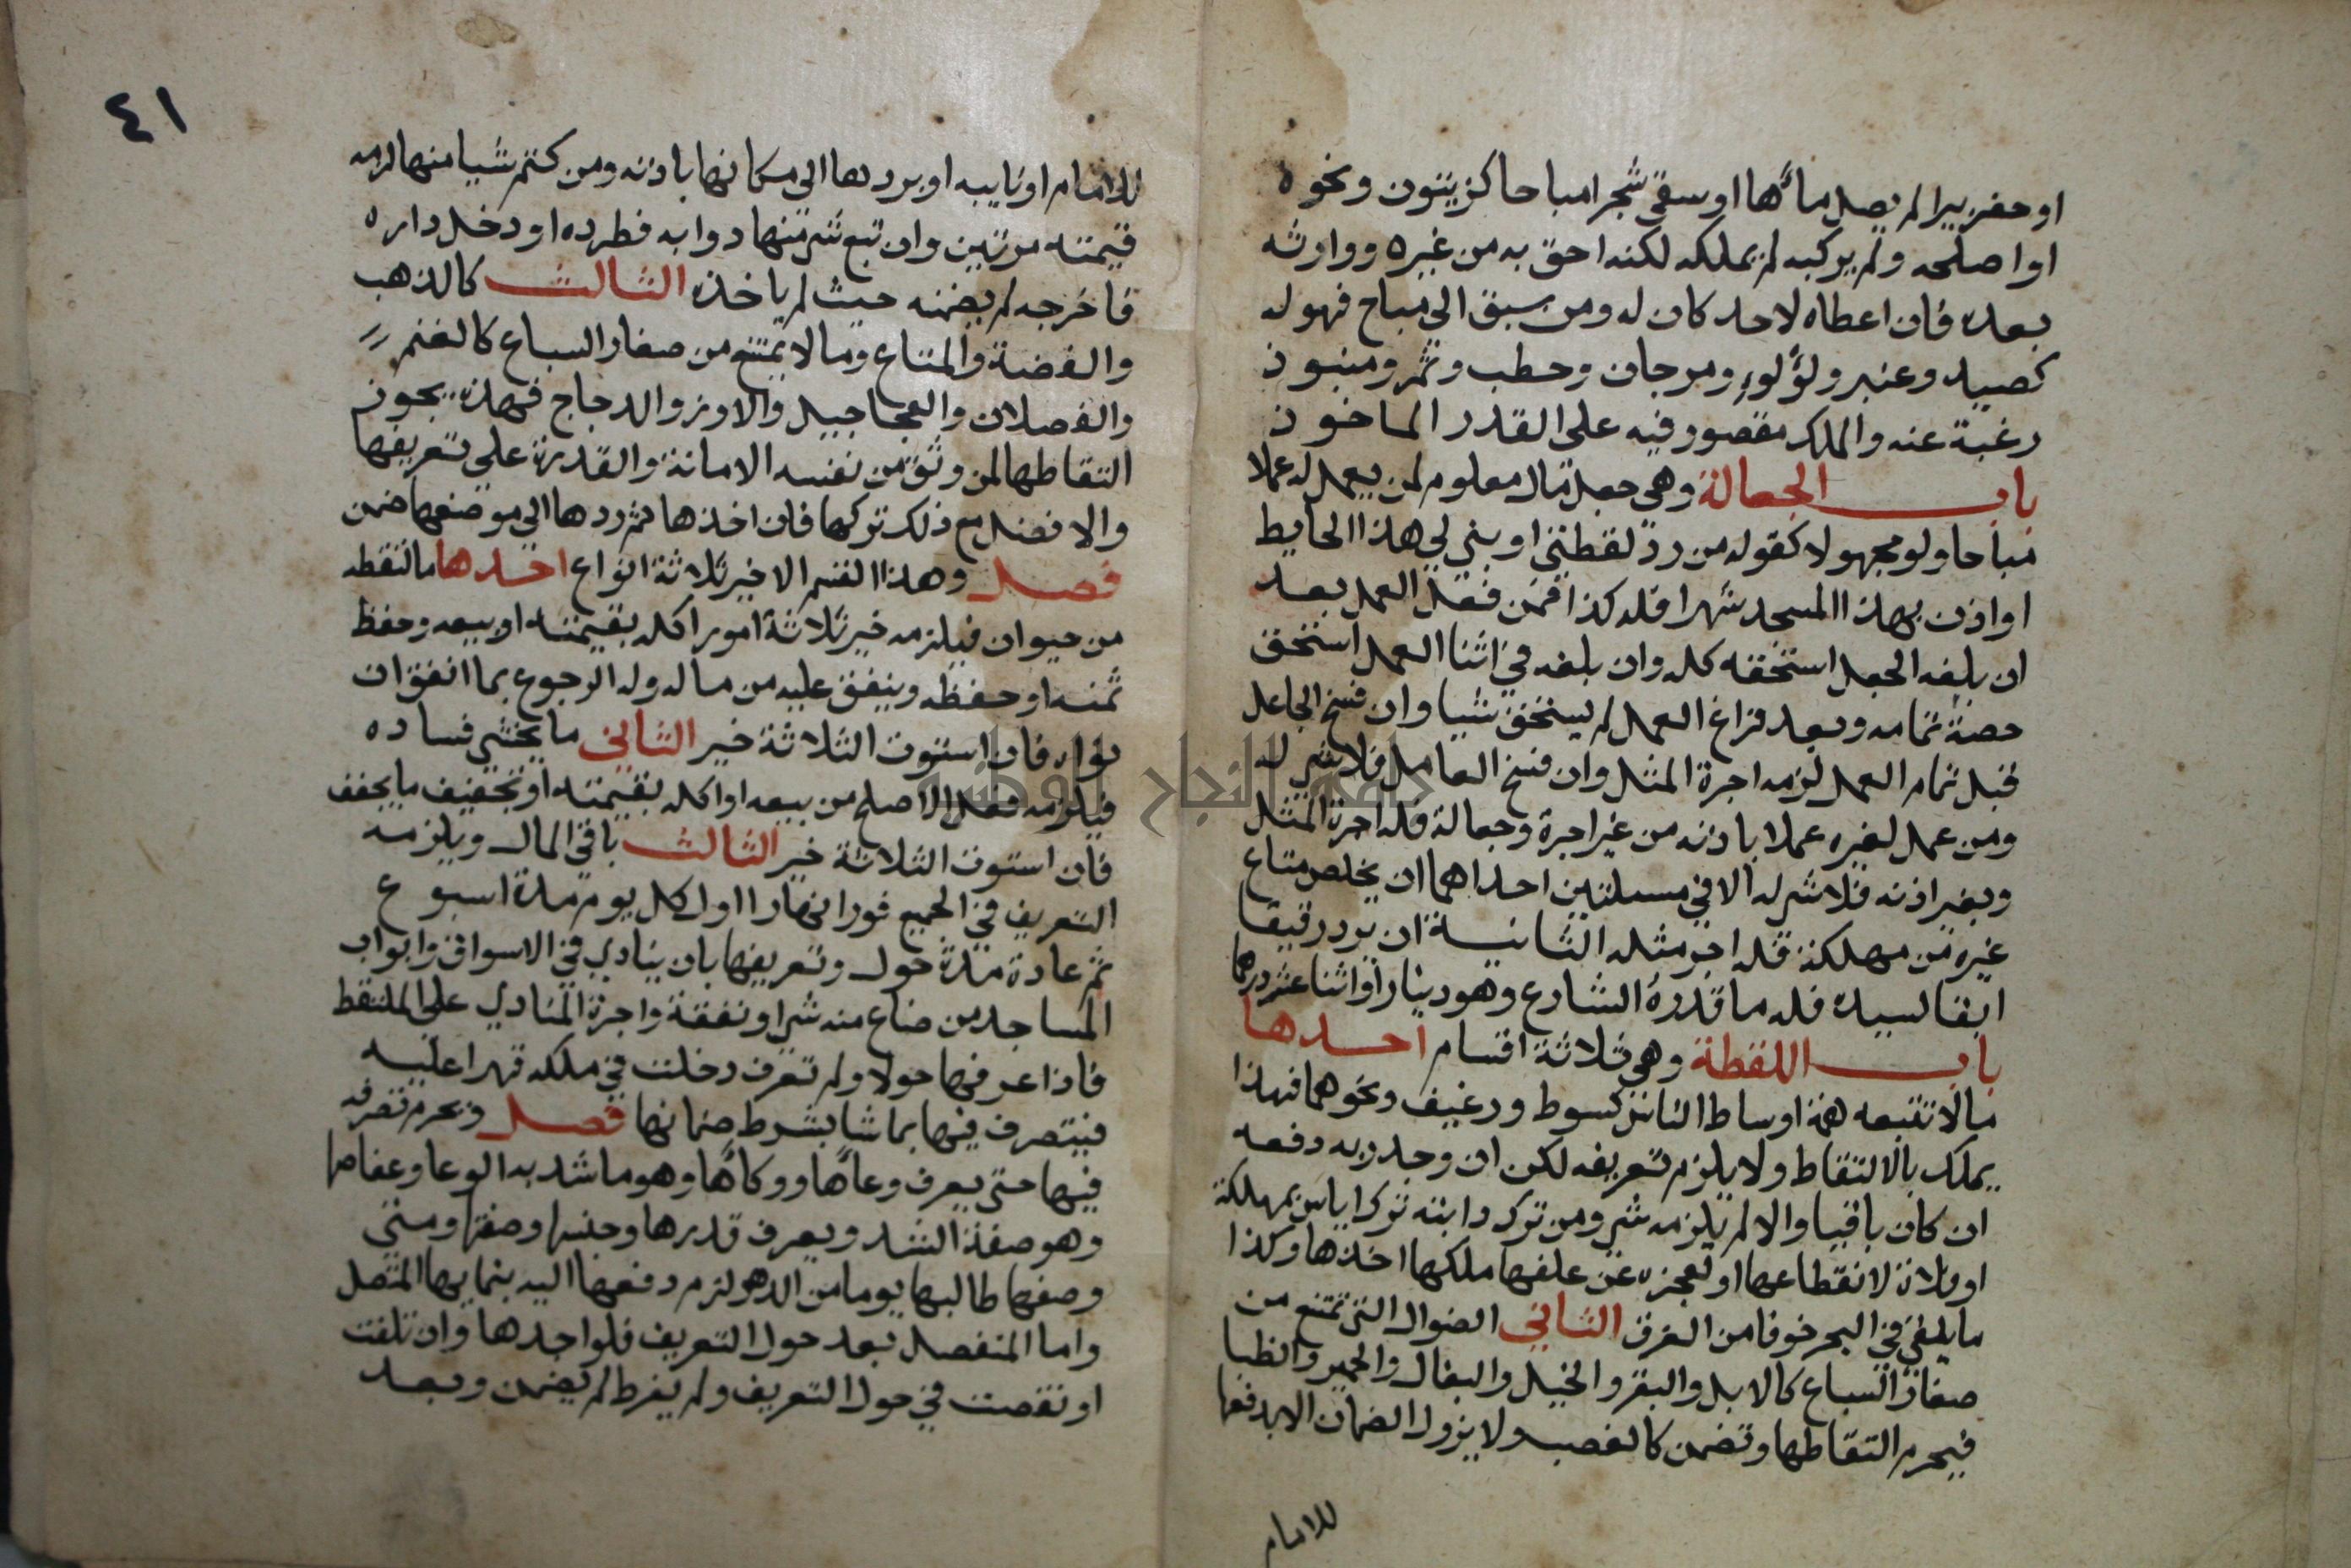 او حفر بيرا لم يصل ماءها او سقى شجرا مباحا كزيتون ونحوه
او اصلحه ولم يركبه لم يملكه لكنه احق به من غيره ووارثه
بعده فان اعطاه لاحد كان له ومن سبق الي مباح فهو له
كصيد وعنبر ولؤلوء ومرجان وحطب وثمر ومنبوذ
رغبة عنه والملك مقصور فيه على القدر الماخوذ
باب الجعالة وهي جعل مال معلوم لمن يعمل له عملا
مباحا ولو مجهولا كقوله من رد لقطتي او بني لي هذا الحايط
او اذن بهذا المسجد شهرا فله كذا فمن فعل العمل بعد
ان بلغه الجعل استحقه كله وان بلغه في اثنا العمل استحق
حصة تمامه وبعد فراغ العمل لم يستحق شيا وان فسخ الجاعل
قبل تمام العمل لزمه اجرة المثل وان فسخ العامل فلا شي له
ومن عمل لغيره عملا باذنه من غير اجرة وجعالة فله اجرة المثل
وبغير اذنه فلا شي له الا في مسيلتين احداهما ان يخلص متاع
غيره من مهلكة فله اجر مثله الثانية ان يرد رقيقا
ابقا لسيده فله ما قدره الشارع وهو دينار او اثنا عشر درهما
باب اللقطة وهي ثلاثة اقسام احدها
مالا تتبعه همة اوساط الناس كسوط ورغيف ونحوهما فهذا
يملك بالالتقاط ولا يلزم تعريفه لكن ان وجد ربه دفعه
ان كان باقيا والا لم يلزمه شي ومن ترك دابته ترك اياس بمهلكة
او فلاة لانقطاعها او لعجزه عن علفها ملكها اخذها وكذا
ما يلقى في البحر خوفا من الغرق الثاني الضوال التي تمتنع من
صغار السباع كالابل والبقر والخيل والبغال والحمير والظبا
فيحرم التقاطها وتضمن كالغصب ولا يزول الضمان الا بدفعها
للامام
٤١
للامام او نايبه او يردها الى مكانها باذنه ومن كتم شيا منها لزمه
قيمته مرتين وان تبع شي منها دوابه فطرده او دخل داره
فاخرجه لم يضمنه حيث لم ياخذه الثالث كالذهب
والفضة والمتاع وما لا يمتنع من صغار السباع كالغنم
والفصلان والعجاجيل والاوز والدجاج فهذه يجوز
التقاطها لمن وثق من نفسه الامانة والقدرة علي تعريفها
والافضل مع ذلك تركها فان اخذها ثم ردها الي موضعها ضمن
فصل وهذا القسم الاخير ثلاثة انواع احدها ما التقطه
من حيوان فيلزمه خير ثلاثة امور اكله بقيمته او بيعه وحفظ
ثمنه او حفظه وينفق عليه من ماله وله الرجوع بما انفق ان
نواه فان استوت الثلاثة خير الثاني ما يخشي فساده
فيلزمه فعل الاصلح من بيعه او اكله بقيمته او تجفيف ما يجفف
فان استوت الثلاثة خير الثالث باقي المال ويلزمه
التعريف في الجميع فورا نهارا اول كل يوم مدة اسبوع
ثم عادة مدة حول وتعريفها بان ينادي في الاسواق وابواب
المساجد من ضاع منه شي او نفقة واجرة المنادي على الملتقط
فاذا عرفها حولا ولم تعرف دخلت في ملكه قهرا عليه
فيتصرف فيها بما شا بشرط ضمانها فصل ويحرم تصرفه
فيها حتى يعرف وعاها ووكاها وهو ما شد به الوعا وعفاصها
وهو صفة الشد ويعرف قدرها وجنسها وصفتها ومتى
وصفها طالبها يوما من الدهر لزم دفعها اليه بنمايها المتصل
واما المنفصل بعد حول التعريف فلواجدها وان تلفت
او نقصت في حول التعريف ولم يفرط لم يضمن وبعد
جامعة النجاح الوطنية